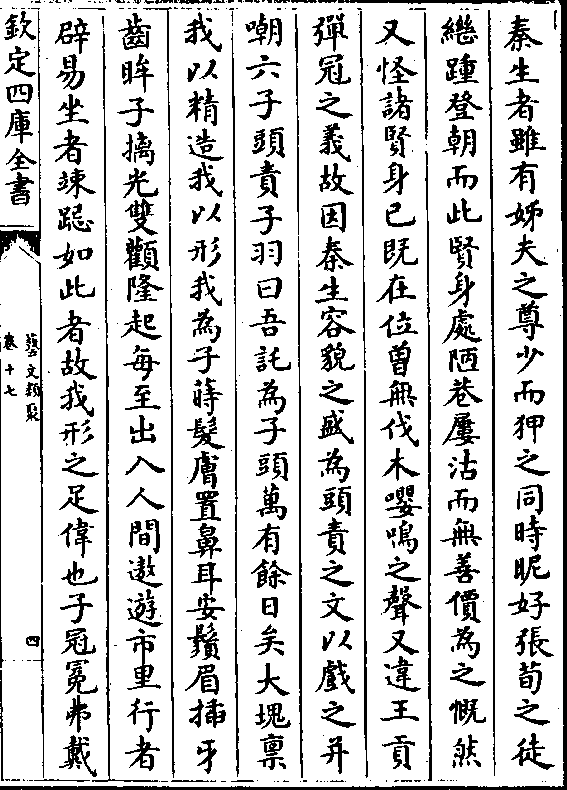 秦生者雖有姊夫之尊少而狎之同時昵好張荀之徒
繼踵登朝而此賢身處陋巷屢沽而無善價為之慨然
又怪諸賢身已既在位曾無伐木嚶鳴之聲又違王貢
彈冠之義故因秦生容貌之盛為頭責之文以戲之并
嘲六子頭責子羽曰吾託為子頭萬有餘日矣大塊稟
我以精造我以形我為子蒔髮膚置鼻耳安鬚眉插牙
齒眸子摛光雙顴隆起每至出入人間遨遊市里行者
辟易坐者竦跽如此者故我形之足偉也子冠冕弗戴
欽定四庫全書
藝文類聚
卷十七
四